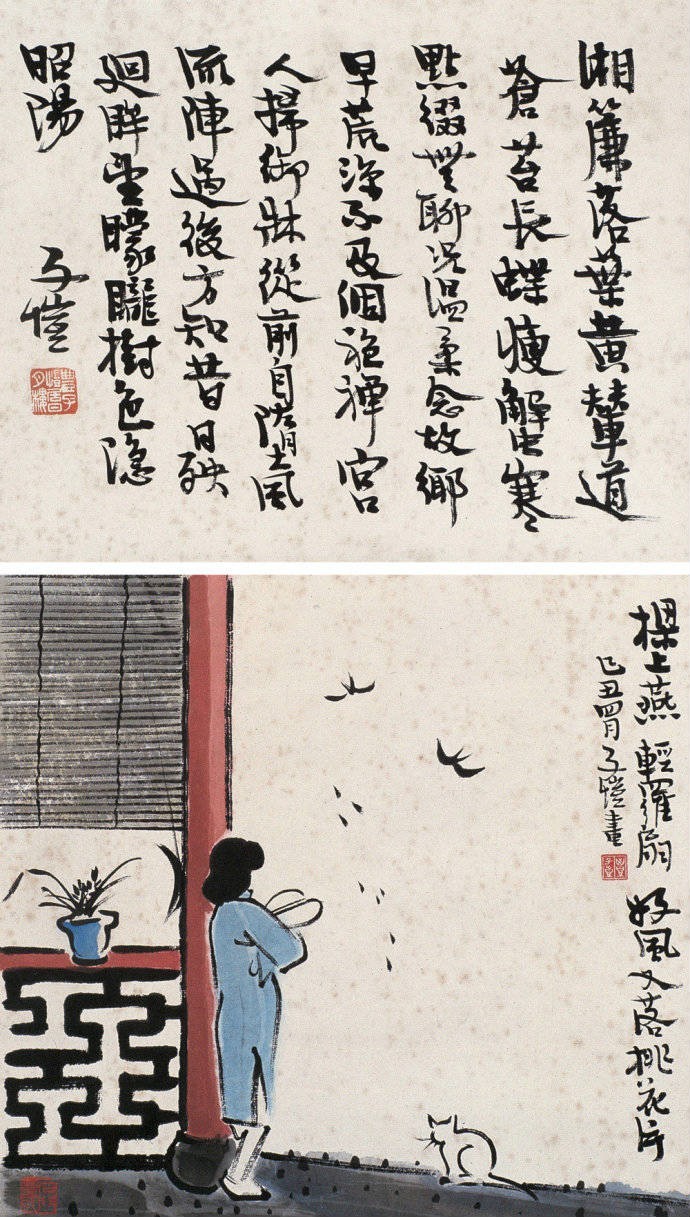 湘簾落葉黄輦道
蒼苔長蝶瘦蟹寒
點綴無聊況温柔念故鄉
早荒涼不及個禪宮
人掃御牀從前自墮風
流陣過後方知昔日殃
迴眸望曚曨樹色隱
昭陽
子愷
樑上燕 輕羅扇 好風又落桃花片
己丑四月 子愷畫